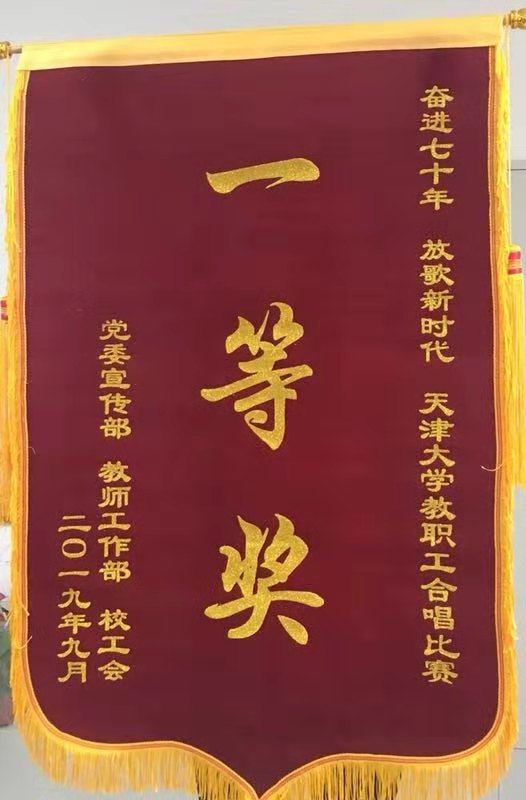 奋进七十年 放歌新时代 天津大学教职工合唱比赛
一等奖
党委宣传部 教师工作部 校工会
二〇一九年九月